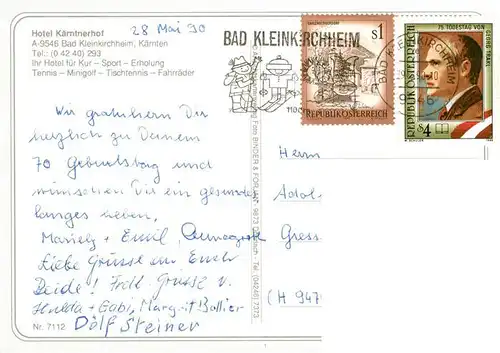 Hotel Kärntnerhof
A-9546 Bad Kleinkirchheim, Kärnten
Tel.: (0 42 40) 293
Ihr Hotel für Kur – Sport – Erholung
Tennis – Minigolf – Tischtennis – Fahrräder
28 Mai 90
BAD KLEINKIRCHHEIM
S1
REPUBLIK ÖSTERREICH
75. TODESTAG VON
GEORG TRAKL
REPUBLIK ÖSTERREICH
S4
Wir gratulieren Dir
herzlich zu Deinem
70 Geburtstag und
wünschen Dir ein gesundes
langes Leben.
Emil,
Liebe Grüsse an Euch
Beide! Frdl. Grüsse v.
Hulda + Gabi, Margrit
Dölf Steiner
Nr. 7112
Herrn
Adol
Gress
(H 947